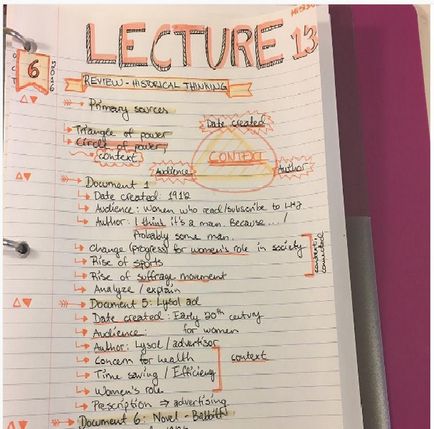 LECTURE 13
OCT 6 2016
REVIEW - HISTORICAL THINKING
Primary sources
Date created
Triangle of power
Circle of power
context
CONTEXT
Audience
Author
Document 1
Date created: 1912
Audience: Women who read/subscribe to LHJ
Author: I think it's a man. Because... /
Probably some man.
Change (progress) for women's role in society
Rise of sports
Rise of suffrage movement
context, connected
Analyze / explain
Document 5: Lysol ad
Date created: Early 20th century
Audience: for women
Author: Lysol / advertisor
Concern for health
context
Time saving / Efficiency
Women's role
Prescription ⇒ advertising
Document 6: Novel - Babbitt